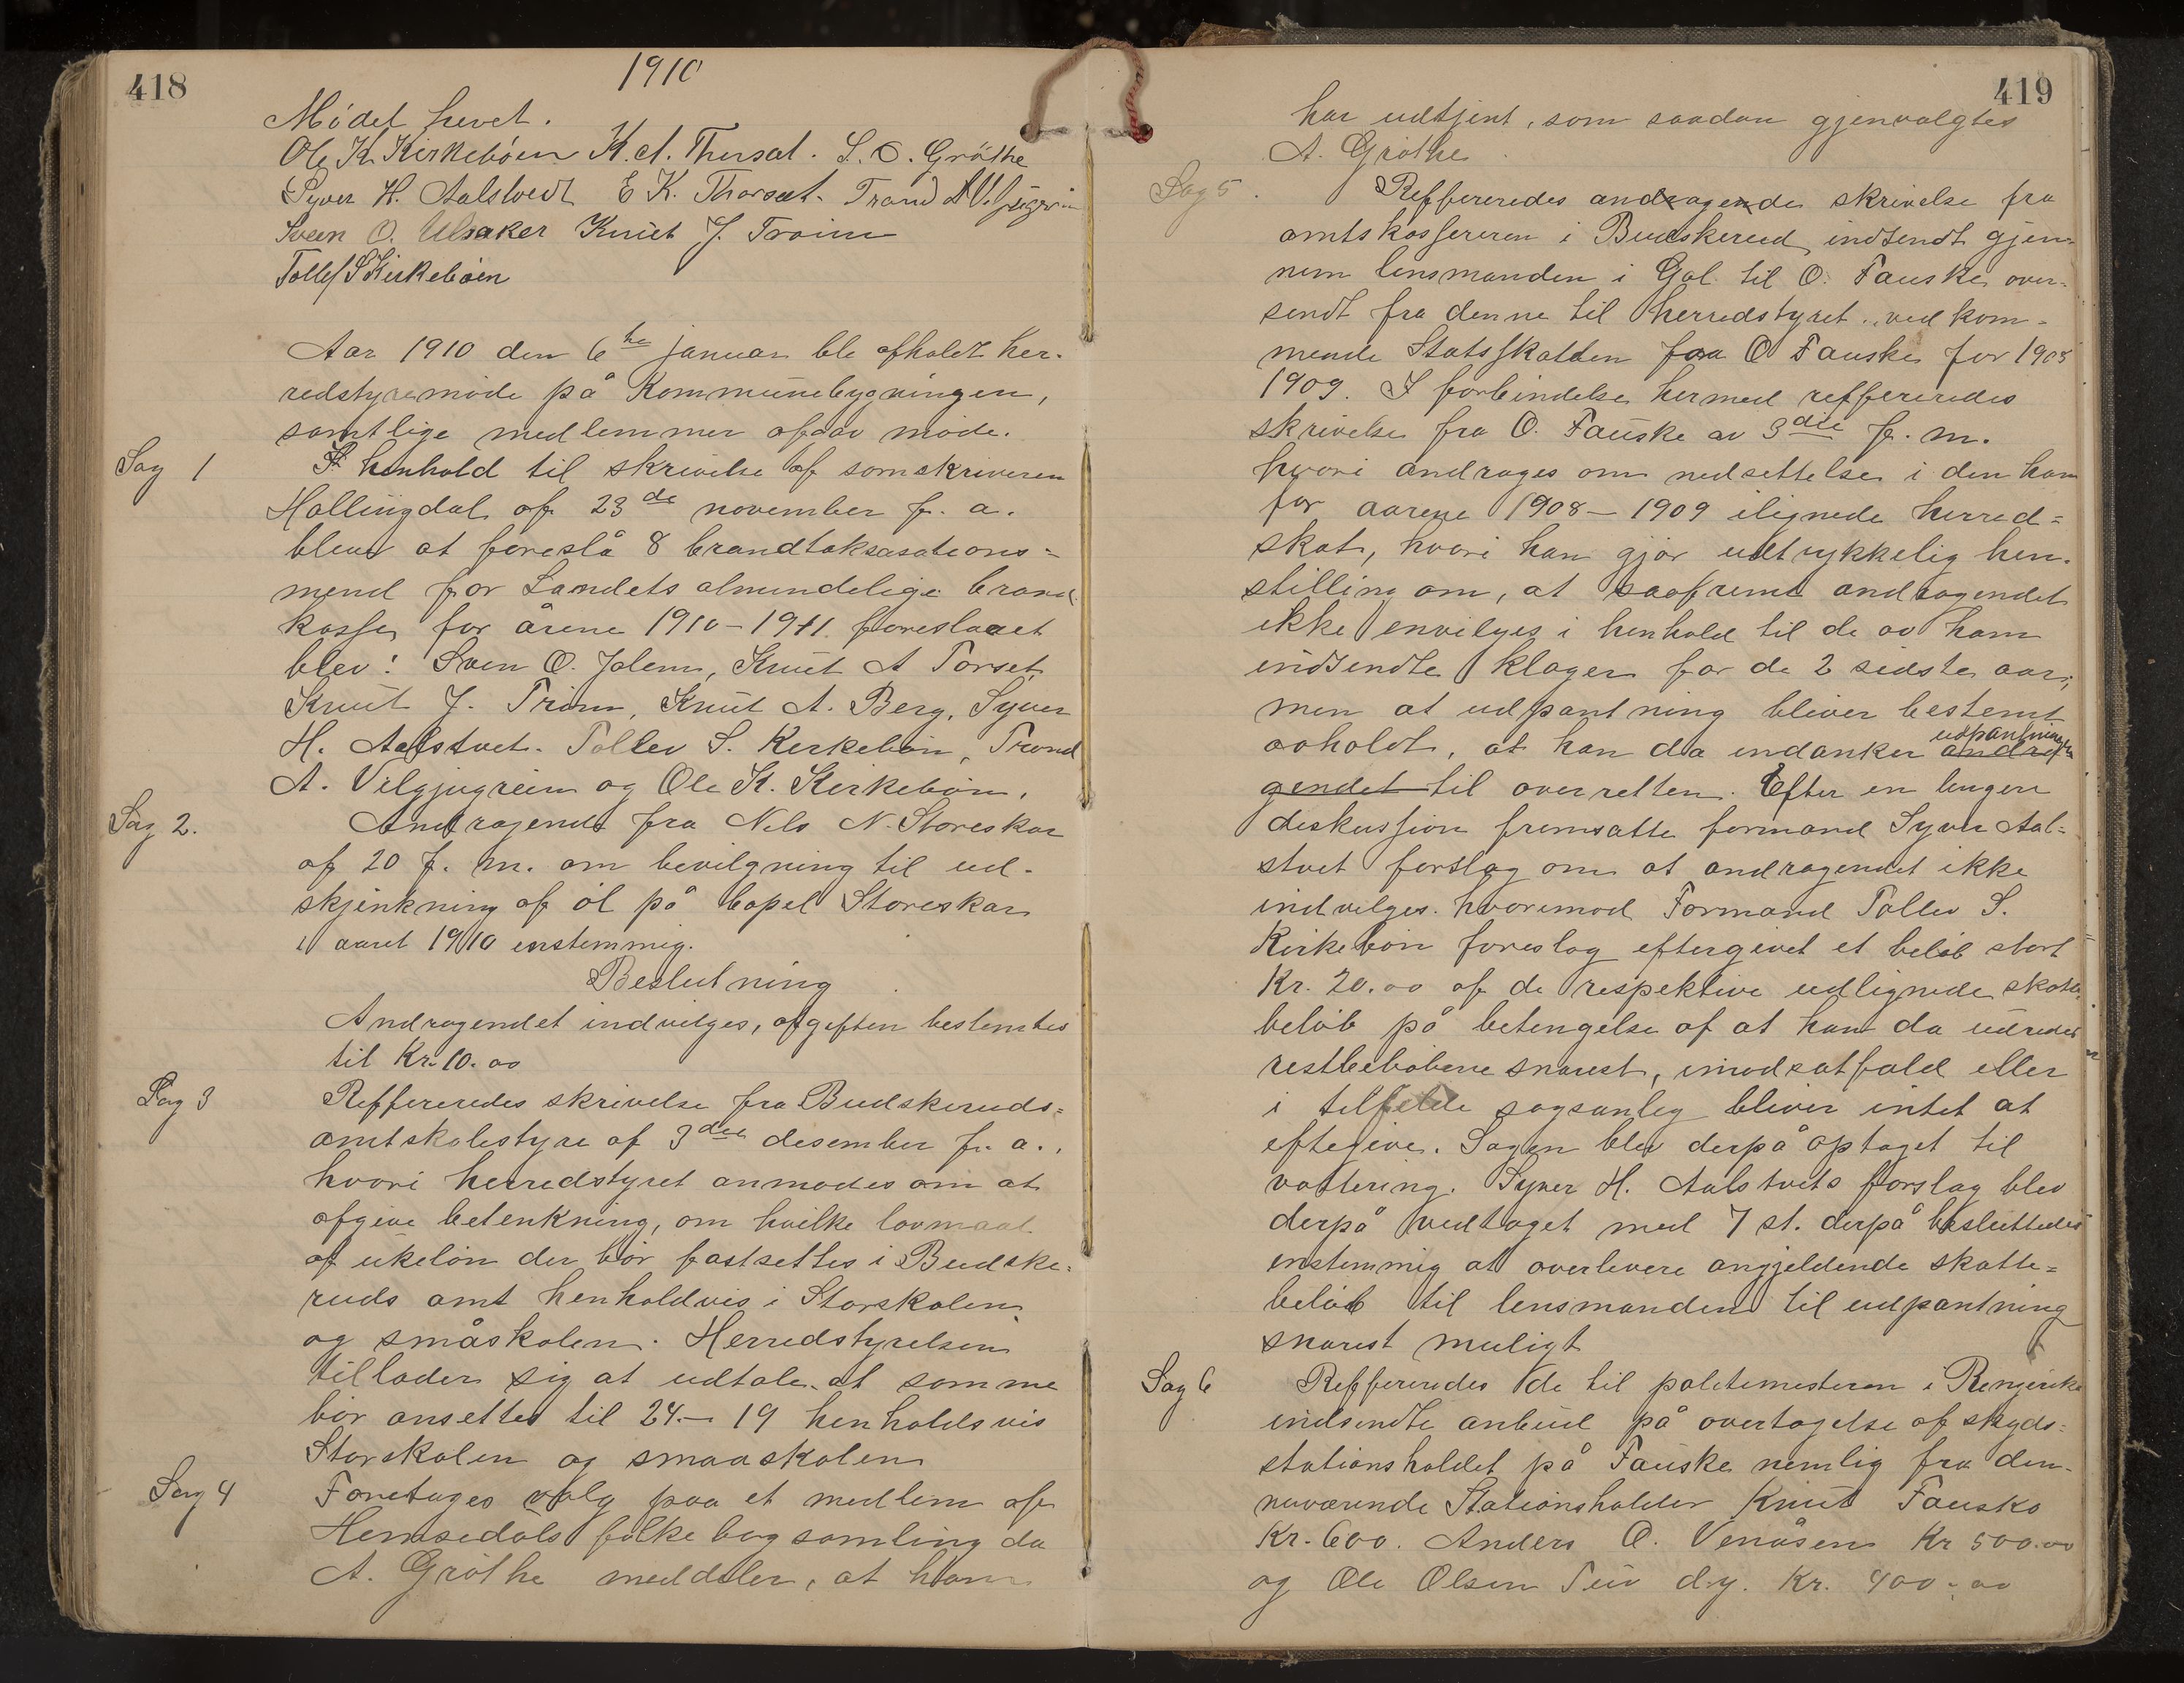 418
1910
Mödet hevet.
Ole K. Kirkeböen K. A. Thorsat. S. O. Gröthe
Syver H. Aalstvedt E K. Thorsat. Trond A
Sven O. Ulsaker Knut J. Troim
Tollef S Kirkeböen
Aar 1910 den 6te januar ble afholdt her-
redstyremöde på Kommunebygningen,
samtlige medlemmer afgav möde.
Sag 1
I henhold til skrivelse af somskriveren
Hallingdal af 23de november f. a.
blev at foreslå 8 brandtaksasations-
mend for Landets almindelige brand
kasse for årene 1910-1911. foreslaaet
blev: Sven O. Jolem, Knut A Torset,
Knut J. Triom, Knut A. Berg, Syver
H. Aalstvet. Tollev S. Kirkeböin, Trond
A. Velgjugrein og Ole K. Kirkeböin.
Sag 2.
Andragende fra Nils N. Storeskar
af 20 f. m. om bevilgning til ud-
skjenkning af öl på bopel Storeskar
i aaret 1910 enstemmig.
Beslutning
Andragendet indvilges, afgiften bestemtes
til Kr. 10.00
Sag 3
Reffereredes skrivelse fra Budskeruds-
amtskolestyre af 3die desember f. a.,
hvori herredstyret anmodes om at
afgive betenkning, om hvilke lovmaal
af ukelön der bör fastsettes i Budske-
ruds amt henholdvis i Storskolen
og småskolen. Herredstyrelsen
tillader sig at udtale at somme
bör ansettes til 24.- 19 henholdsvis
Storskolen og smaaskolen
Sag 4
Foretages valg paa et medlem af
Hemsedals folkebogsamling da
A. Gröthe meddeler, at han
419
har udtjent, som saadan gjenvalgtes
A. Gröthe.
Sag 5.
Reffereredes andragende skrivelse fra
amtskassereren i Buskerud indsendt gjen-
nem lensmanden i Gol til O. Fauske over-
sendt fra denne til Herredstyret. vedkom-
mende Statsskatten fra O Fauske for 1908
1909. I forbindelse hermed reffereredes
skrivelse fra O. Fauske av 3die f. m.
hvori andrages om nedsettelse i den ham
for aarene 1908-1909 ilignede herred-
skat, hvori han gjör udtrykkelig hen-
stilling om, at saafremt andragendet
ikke envilges i henhold til de av ham
indsendte klager for de 2 sidste aar,
men at udpantning bliver bestemt
avholdt, at han da indanker udpantningen andra
gendet til overretten. Efter en lengere
deskussion fremsatte formand Syver Aal-
stvet forslag om at andragendet ikke
indvilges. hvorimod Formand Tollev S.
Kirkeböin foreslog eftergivet et belöb stort
Kr. 20.00 af de respektive udlignede skatte
belöb på betengelse af at han da udreder
restbelöbene snarest, imodsatfald eller
i tilfelde sagsanleg bliver intet at
eftegive. Sagen blev derpå optaget til
vottering. Syver H. Aalstvets forslag blev
derpå vedtaget med 7 st. derpå besluttedes
enstemmig at overlevere angjeldende skatte-
belöb til lensmanden til udpantning
snarest muligt
Sag 6
Reffereredes de til politimesteren i Ringerike
indsendte anbud på overtagelse af skyds-
stationsholdet på Fauske nemlig fra den-
nuværende Stationsholder Knut Fauske
Kr. 600. Anders O. Venåsen Kr 500.00
og Ole Olsen Tuv d.y. Kr. 400.00